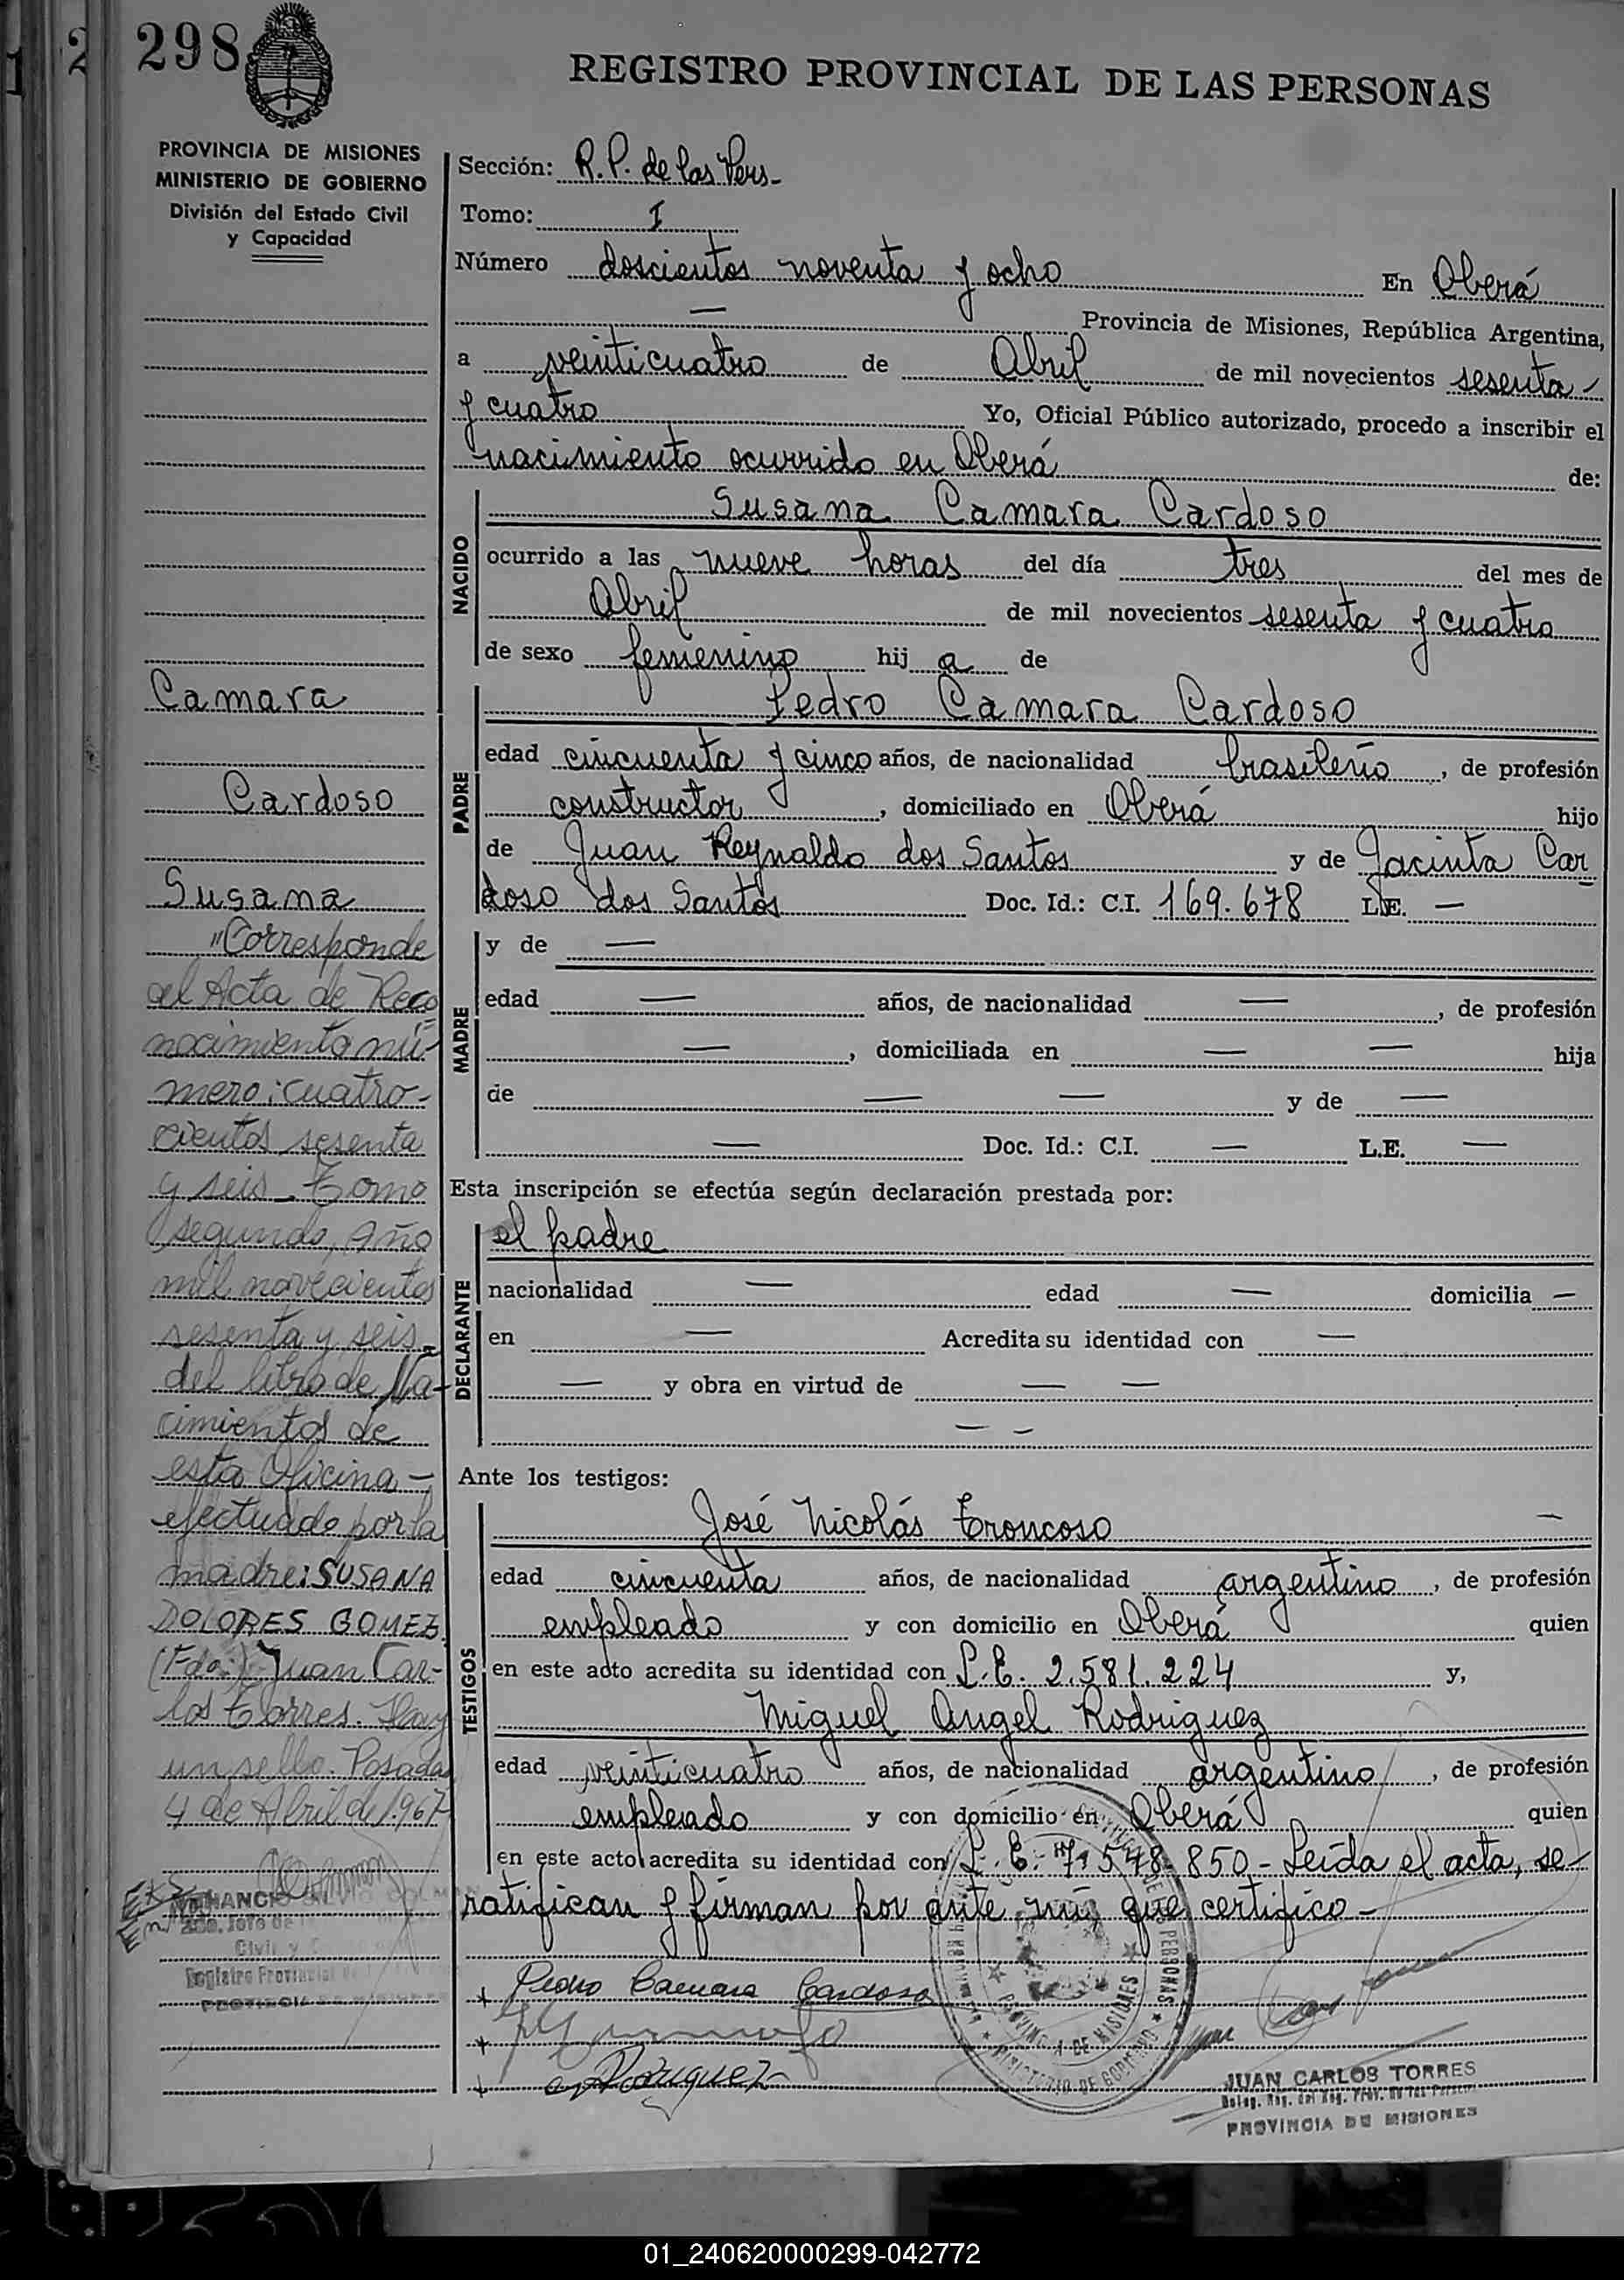 298
REGISTRO PROVINCIAL DE LAS PERSONAS
PROVINCIA DE MISIONES
MINISTERIO DE GOBIERNO
División del Estado Civil
y Capacidad
Camara
Cardoso
Susana
"Corresponde
al Acta de Reco
nocimiento nú-
mero: cuatro-
cientos sesenta
y seis - Tomo
segundo, Año
mil novecientos
sesenta y seis
del libro de Na-
cimientos de
esta Oficina -
efectuado por la
madre: SUSANA
DOLORES GOMEZ
(Fdo:) Juan Car-
los Torres. Hay
un sello. Posadas
4 de Abril de 1.967
Registro Provincial
Sección: R.P. de las Pers-
Tomo: I
Número doscientos noventa y ocho En Oberá
— Provincia de Misiones, República Argentina,
a veinticuatro de Abril de mil novecientos sesenta
y cuatro Yo, Oficial Público autorizado, procedo a inscribir el
nacimiento ocurrido en Oberá de:
NACIDO
Susana Camara Cardoso
ocurrido a las nueve horas del día tres del mes de
Abril de mil novecientos sesenta y cuatro
de sexo femenino hij a de
PADRE
Pedro Camara Cardoso
edad cincuenta y cinco años, de nacionalidad brasileño, de profesión
constructor, domiciliado en Oberá hijo
de Juan Reynaldo dos Santos y de Jacinta Car
doso dos Santos Doc. Id.: C.I. 169.678 L.E. —
MADRE
y de —
edad — años, de nacionalidad —, de profesión
—, domiciliada en — — hija
de — — y de —
— Doc. Id.: C.I. — L.E. —
Esta inscripción se efectúa según declaración prestada por:
DECLARANTE
el padre
nacionalidad — edad — domicilia —
en — Acredita su identidad con —
— y obra en virtud de — —
— —
Ante los testigos:
TESTIGOS
José Nicolás Troncoso —
edad cincuenta años, de nacionalidad argentino, de profesión
empleado y con domicilio en Oberá quien
en este acto acredita su identidad con L.E. 2.581.224 y,
Miguel Angel Rodriguez
edad veinticuatro años, de nacionalidad argentino, de profesión
empleado y con domicilio en Oberá quien
en este acto acredita su identidad con L.E. 7.548.850 - Leída el acta, se
ratifican y firman por ante mí que certifico -
Pedro Camara Cardoso
Rodriguez
PROVINCIA DE MISIONES
MINISTERIO DE GOBIERNO
JUAN CARLOS TORRES
PROVINCIA DE MISIONES
01_240620000299-042772